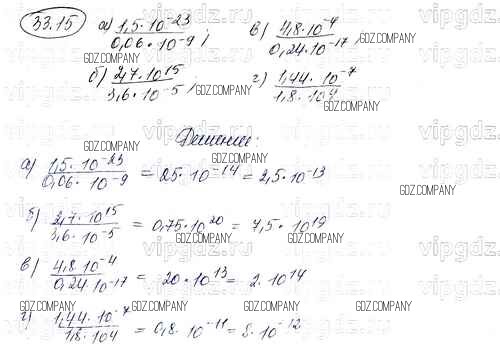 33.15 а) 1,5·10^-23 / 0,06·10^-9 ; в) 4,8·10^-4 / 0,24·10^-17 ;
б) 2,7·10^15 / 3,6·10^-5 ; г) 1,44·10^-7 / 1,8·10^4
Решение:
а) 1,5·10^-23 / 0,06·10^-9 = 25·10^-14 = 2,5·10^-13
б) 2,7·10^15 / 3,6·10^-5 = 0,75·10^20 = 7,5·10^19
в) 4,8·10^-4 / 0,24·10^-17 = 20·10^13 = 2·10^14
г) 1,44·10^-7 / 1,8·10^4 = 0,8·10^-11 = 8·10^-12
vipgdz.ru
GDZ.COMPANY